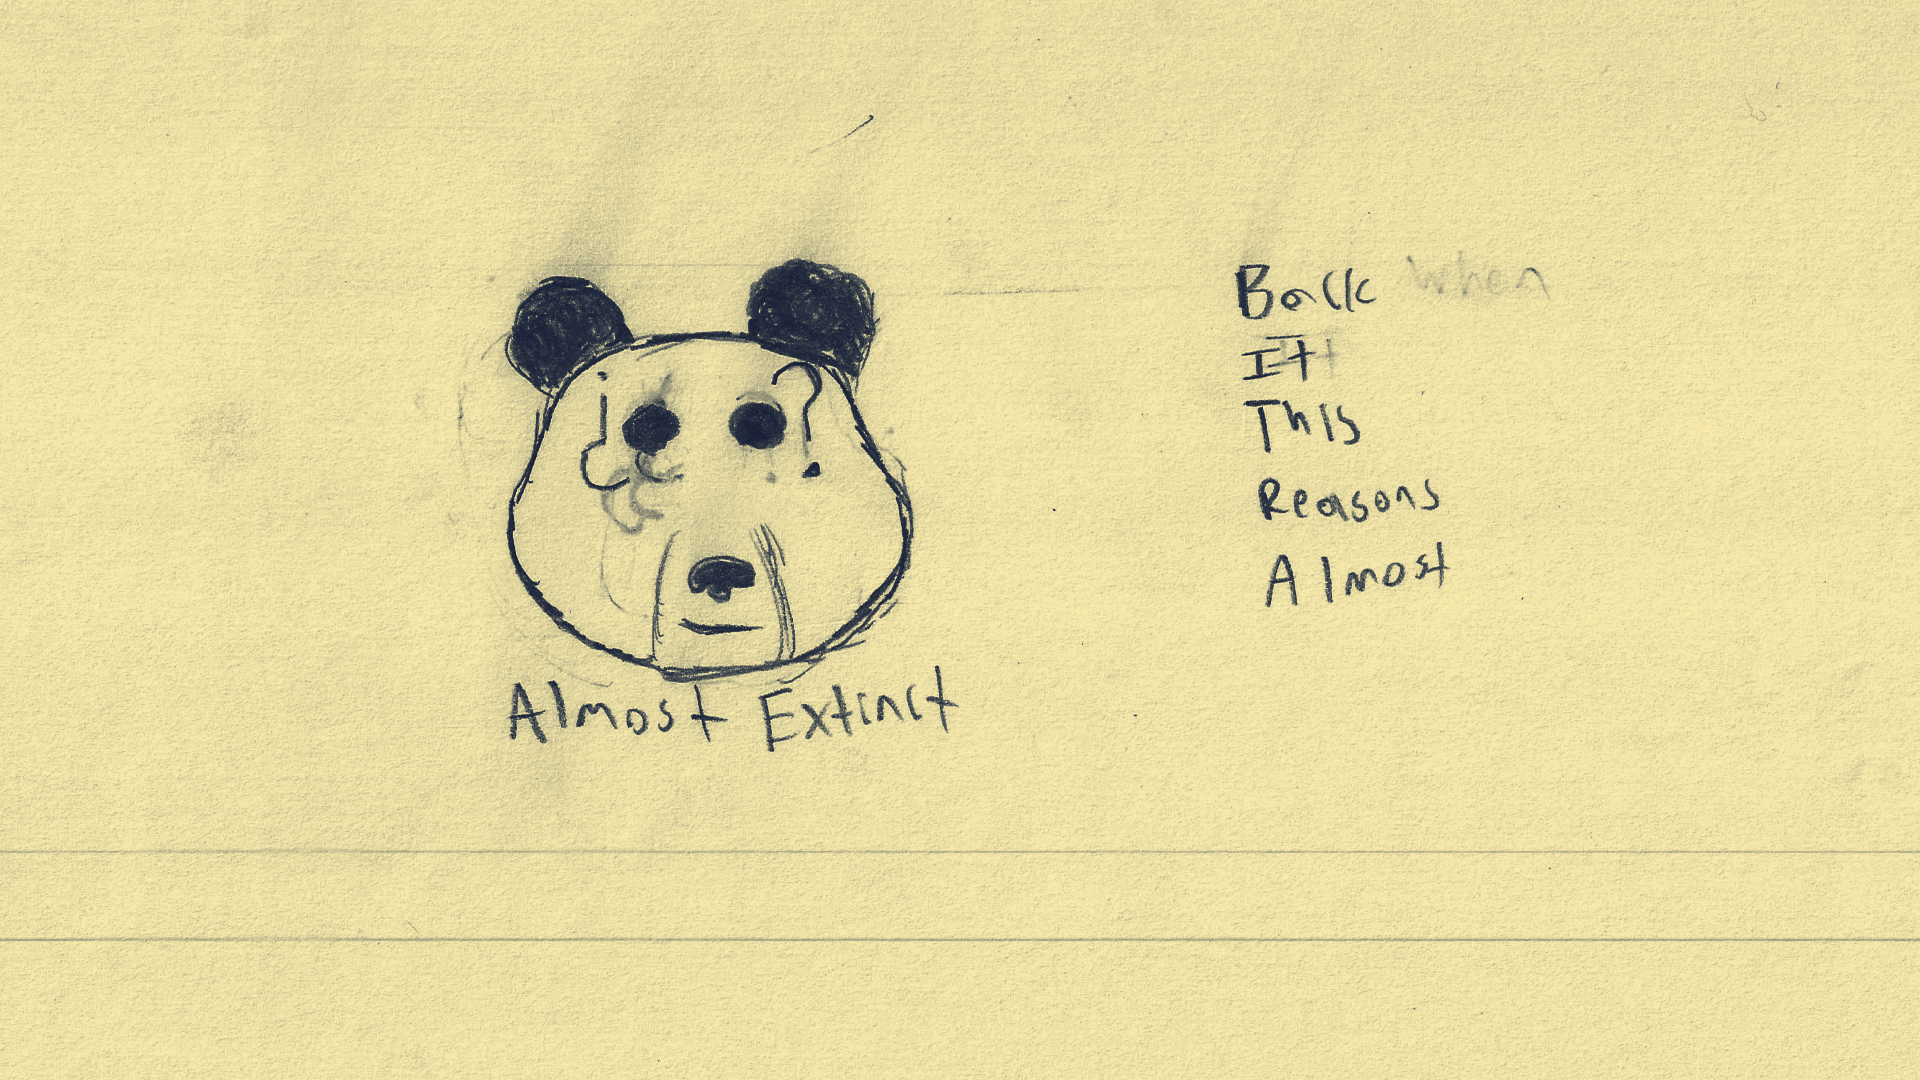 ¿ ?
Almost Extinct
Back when
It
This
Reasons
Almost